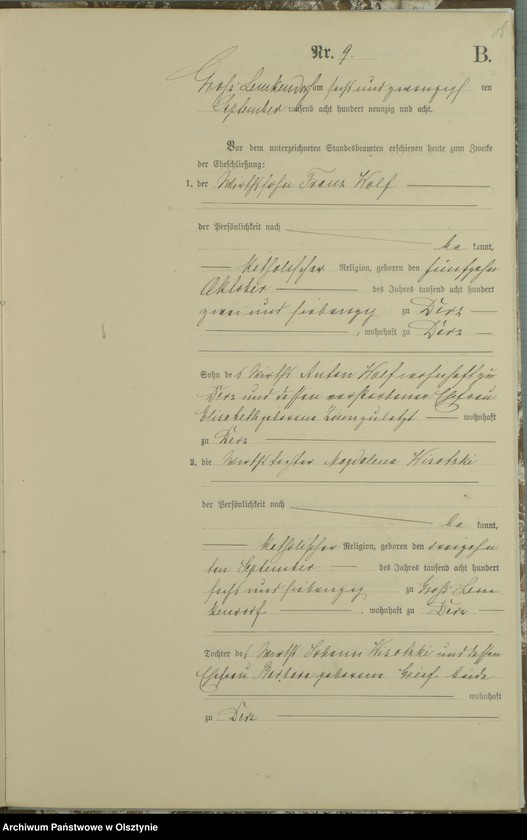 Nr. 9. B.
Groß Lemkendorf am sechs und zwanzigsten
September tausend acht hundert neunzig und acht.
Vor dem unterzeichneten Standesbeamten erschienen heute zum Zwecke
der Eheschließung:
1. der Wirthssohn Franz Wolf
der Persönlichkeit nach
be kannt,
katholischer Religion, geboren den fünfzehn
Oktober des Jahres tausend acht hundert
zwei und siebenzig zu Derz
, wohnhaft zu Derz
Sohn des Wirths Anton Wolf wohnhaft zu
Derz und dessen verstorbener Ehefrau
Elisabeth geborene wohnhaft
zu Derz
2. die Wirthstochter Magdalena Wisotzki
der Persönlichkeit nach
be kannt,
katholischer Religion, geboren den dreizehn
ten September des Jahres tausend acht hundert
sechs und siebenzig zu Groß Lem
kendorf , wohnhaft zu Derz
Tochter des Wirths Johann Wisotzki und dessen
Ehefrau Barbara geborene Greif beide
wohnhaft
zu Derz
Archiwum Państwowe w Olsztynie